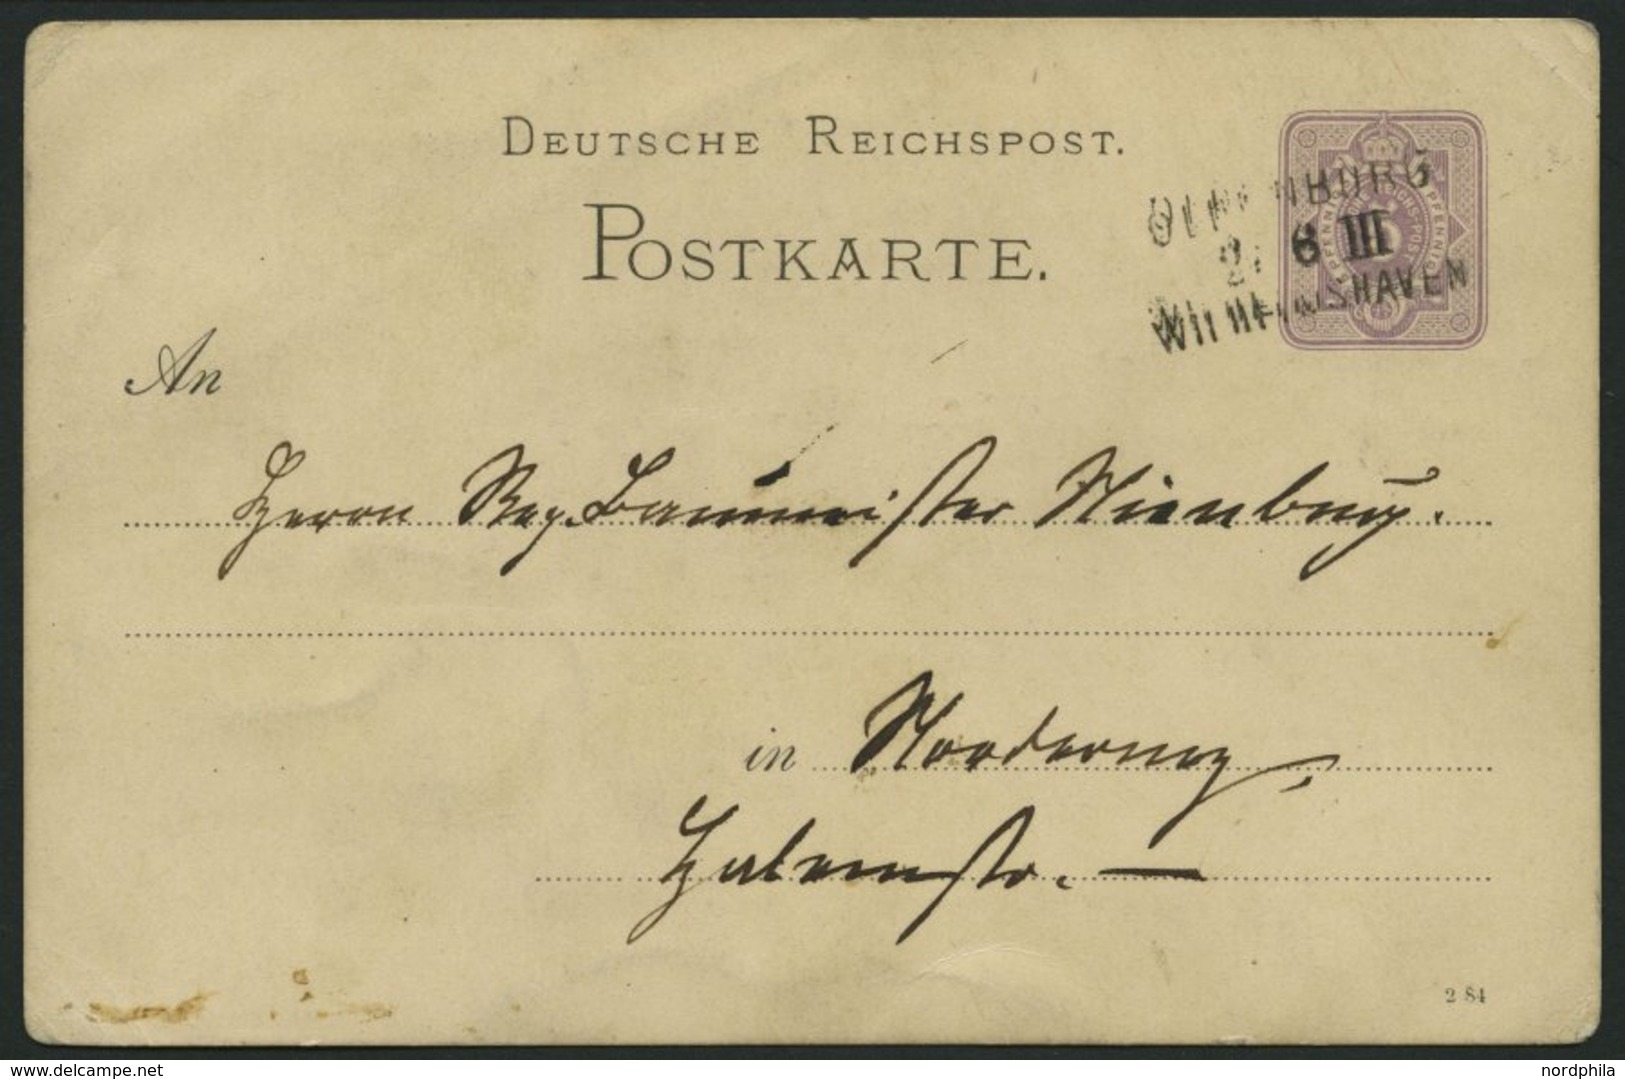 DEUTSCHE REICHSPOST.
POSTKARTE.
OLDENBURG
6 III
WILHELMSHAVEN
An
Herrn Reg. Baumeister Nienburg.
in Norderney,
Halemstr. —
2 84
delcampe.net
nordphila